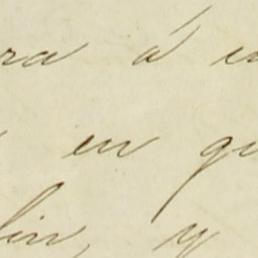 ra á
en qu
lin, y